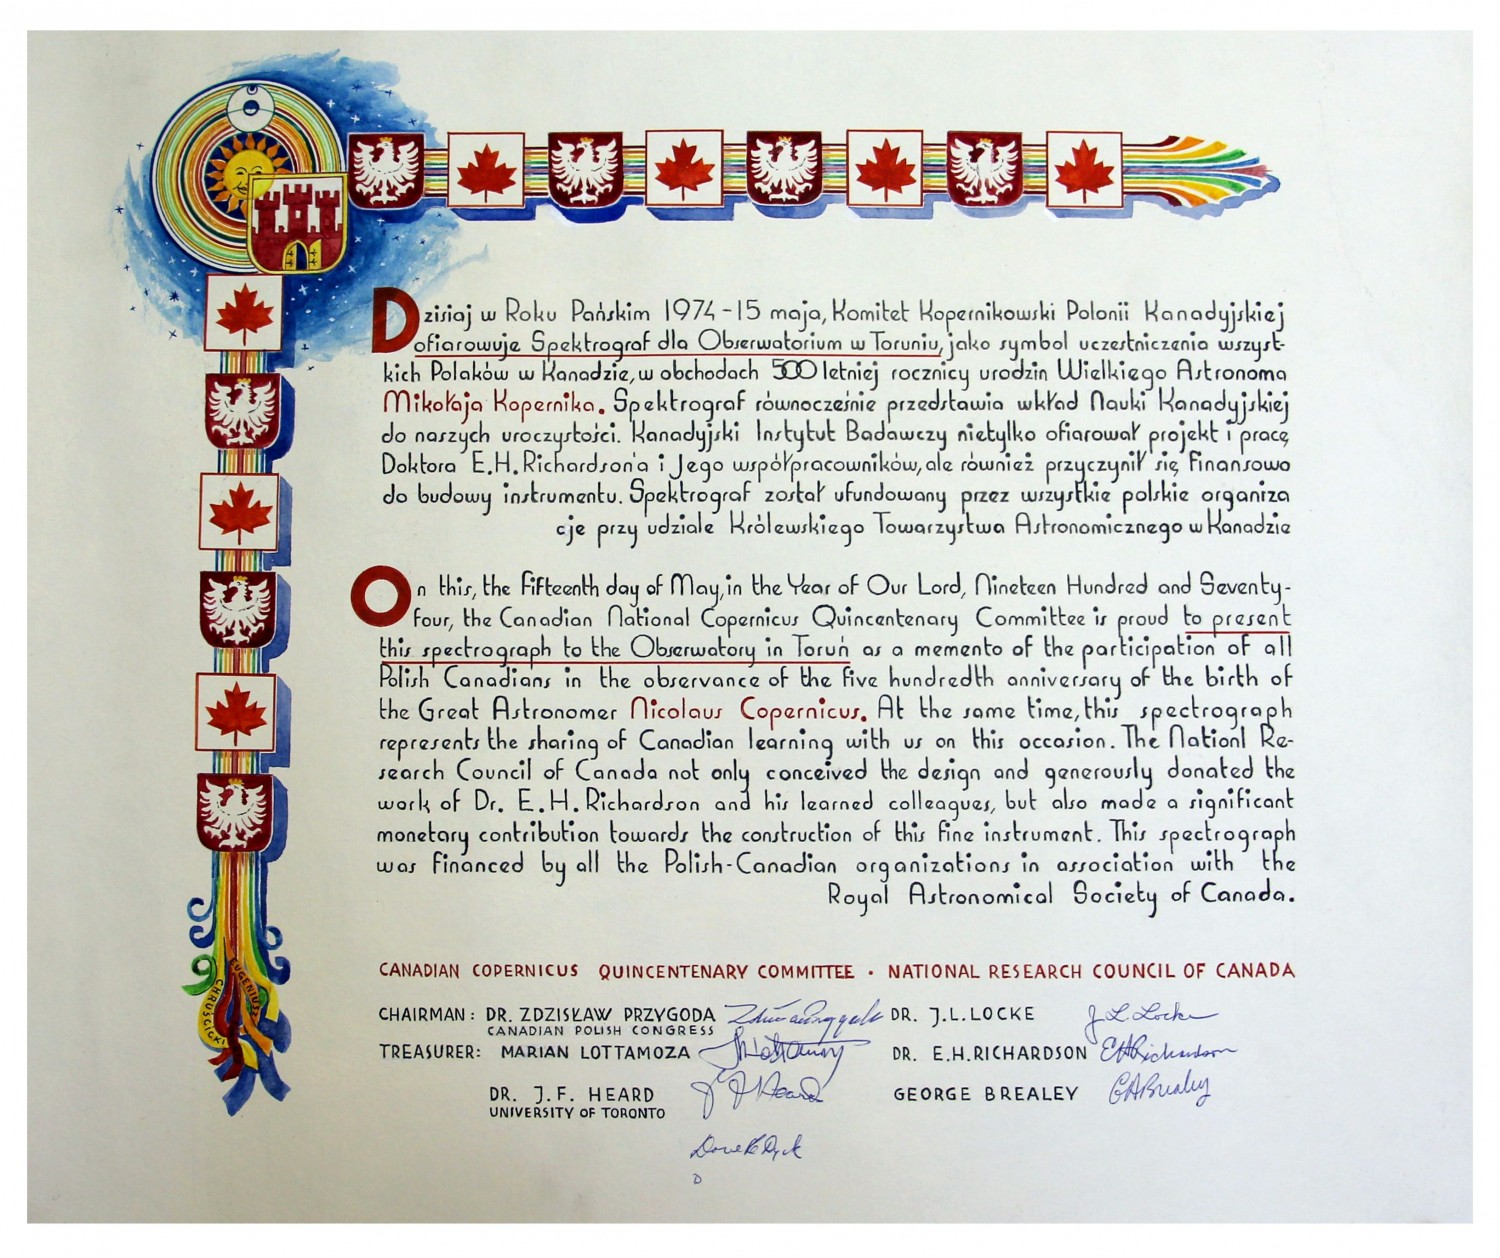 Dzisiaj w Roku Pańskim 1974-15 maja, Komitet Kopernikowski Polonii Kanadyjskiej
ofiarowuje Spektrograf dla Obserwatorium w Toruniu, jako symbol uczestniczenia wszyst-
kich Polaków w Kanadzie, w obchodach 500 letniej rocznicy urodzin Wielkiego Astronoma
Mikołaja Kopernika. Spektrograf równocześnie przedstawia wkład Nauki Kanadyjskiej
do naszych uroczystości. Kanadyjski Instytut Badawczy nietylko ofiarował projekt i pracę
Doktora E.H. Richardson'a i Jego współpracowników, ale również przyczynił się finansowo
do budowy instrumentu. Spektrograf został ufundowany przez wszystkie polskie organiza
cje przy udziale Królewskiego Towarzystwa Astronomicznego w Kanadzie
On this, the fifteenth day of May, in the Year of Our Lord, Nineteen Hundred and Seventy-
four, the Canadian National Copernicus Quincentenary Committee is proud to present
this spectrograph to the Observatory in Toruń as a memento of the participation of all
Polish Canadians in the observance of the five hundredth anniversary of the birth of
the Great Astronomer Nicolaus Copernicus. At the same time, this spectrograph
represents the sharing of Canadian learning with us on this occasion. The Nationl Re-
search Council of Canada not only conceived the design and generously donated the
work of Dr. E.H. Richardson and his learned colleagues, but also made a significant
monetary contribution towards the construction of this fine instrument. This spectrograph
was financed by all the Polish-Canadian organizations in association with the
Royal Astronomical Society of Canada.
CANADIAN COPERNICUS QUINCENTENARY COMMITTEE · NATIONAL RESEARCH COUNCIL OF CANADA
CHAIRMAN: DR. ZDZISŁAW PRZYGODA DR. J.L. LOCKE J L Locke
CANADIAN POLISH CONGRESS
TREASURER: MARIAN LOTTAMOZA DR. E.H. RICHARDSON EHRichardson
DR. J.F. HEARD J F Heard GEORGE BREALEY GABrealey
UNIVERSITY OF TORONTO
EUGENIUSZ
CHRUŚCICKI